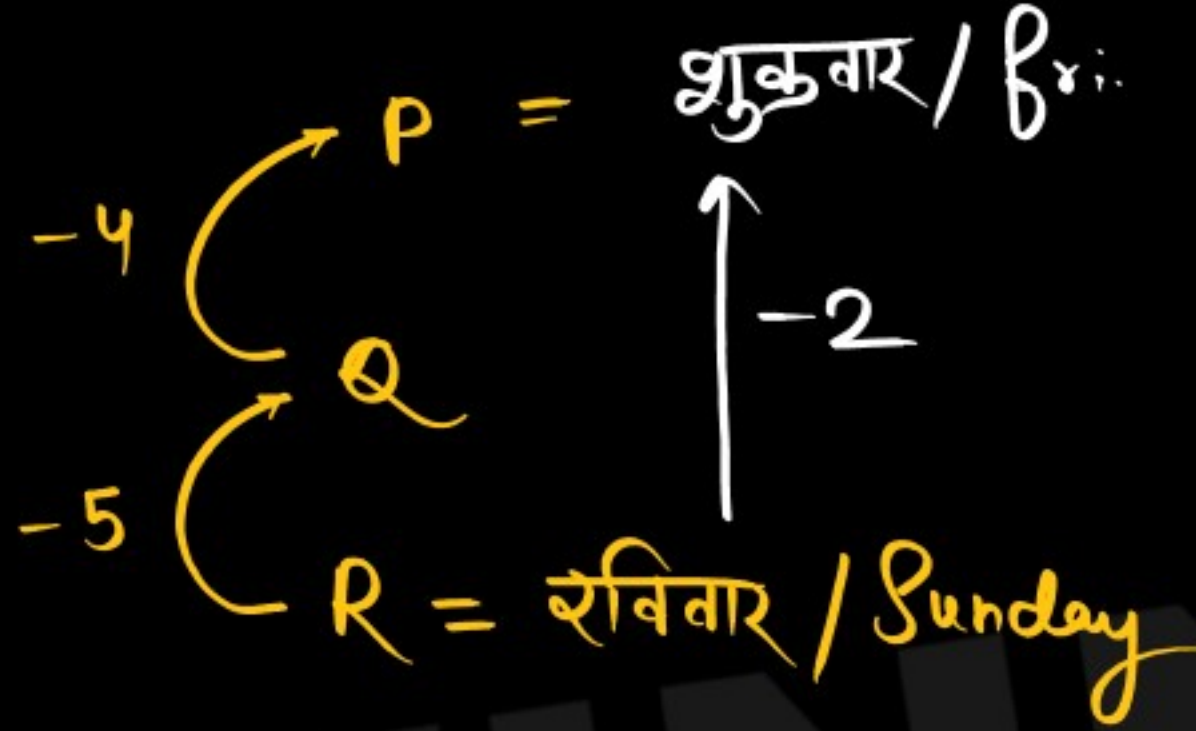 P = शुक्रवार / Fri.
-4
-2
Q
-5
R = रविवार / Sunday